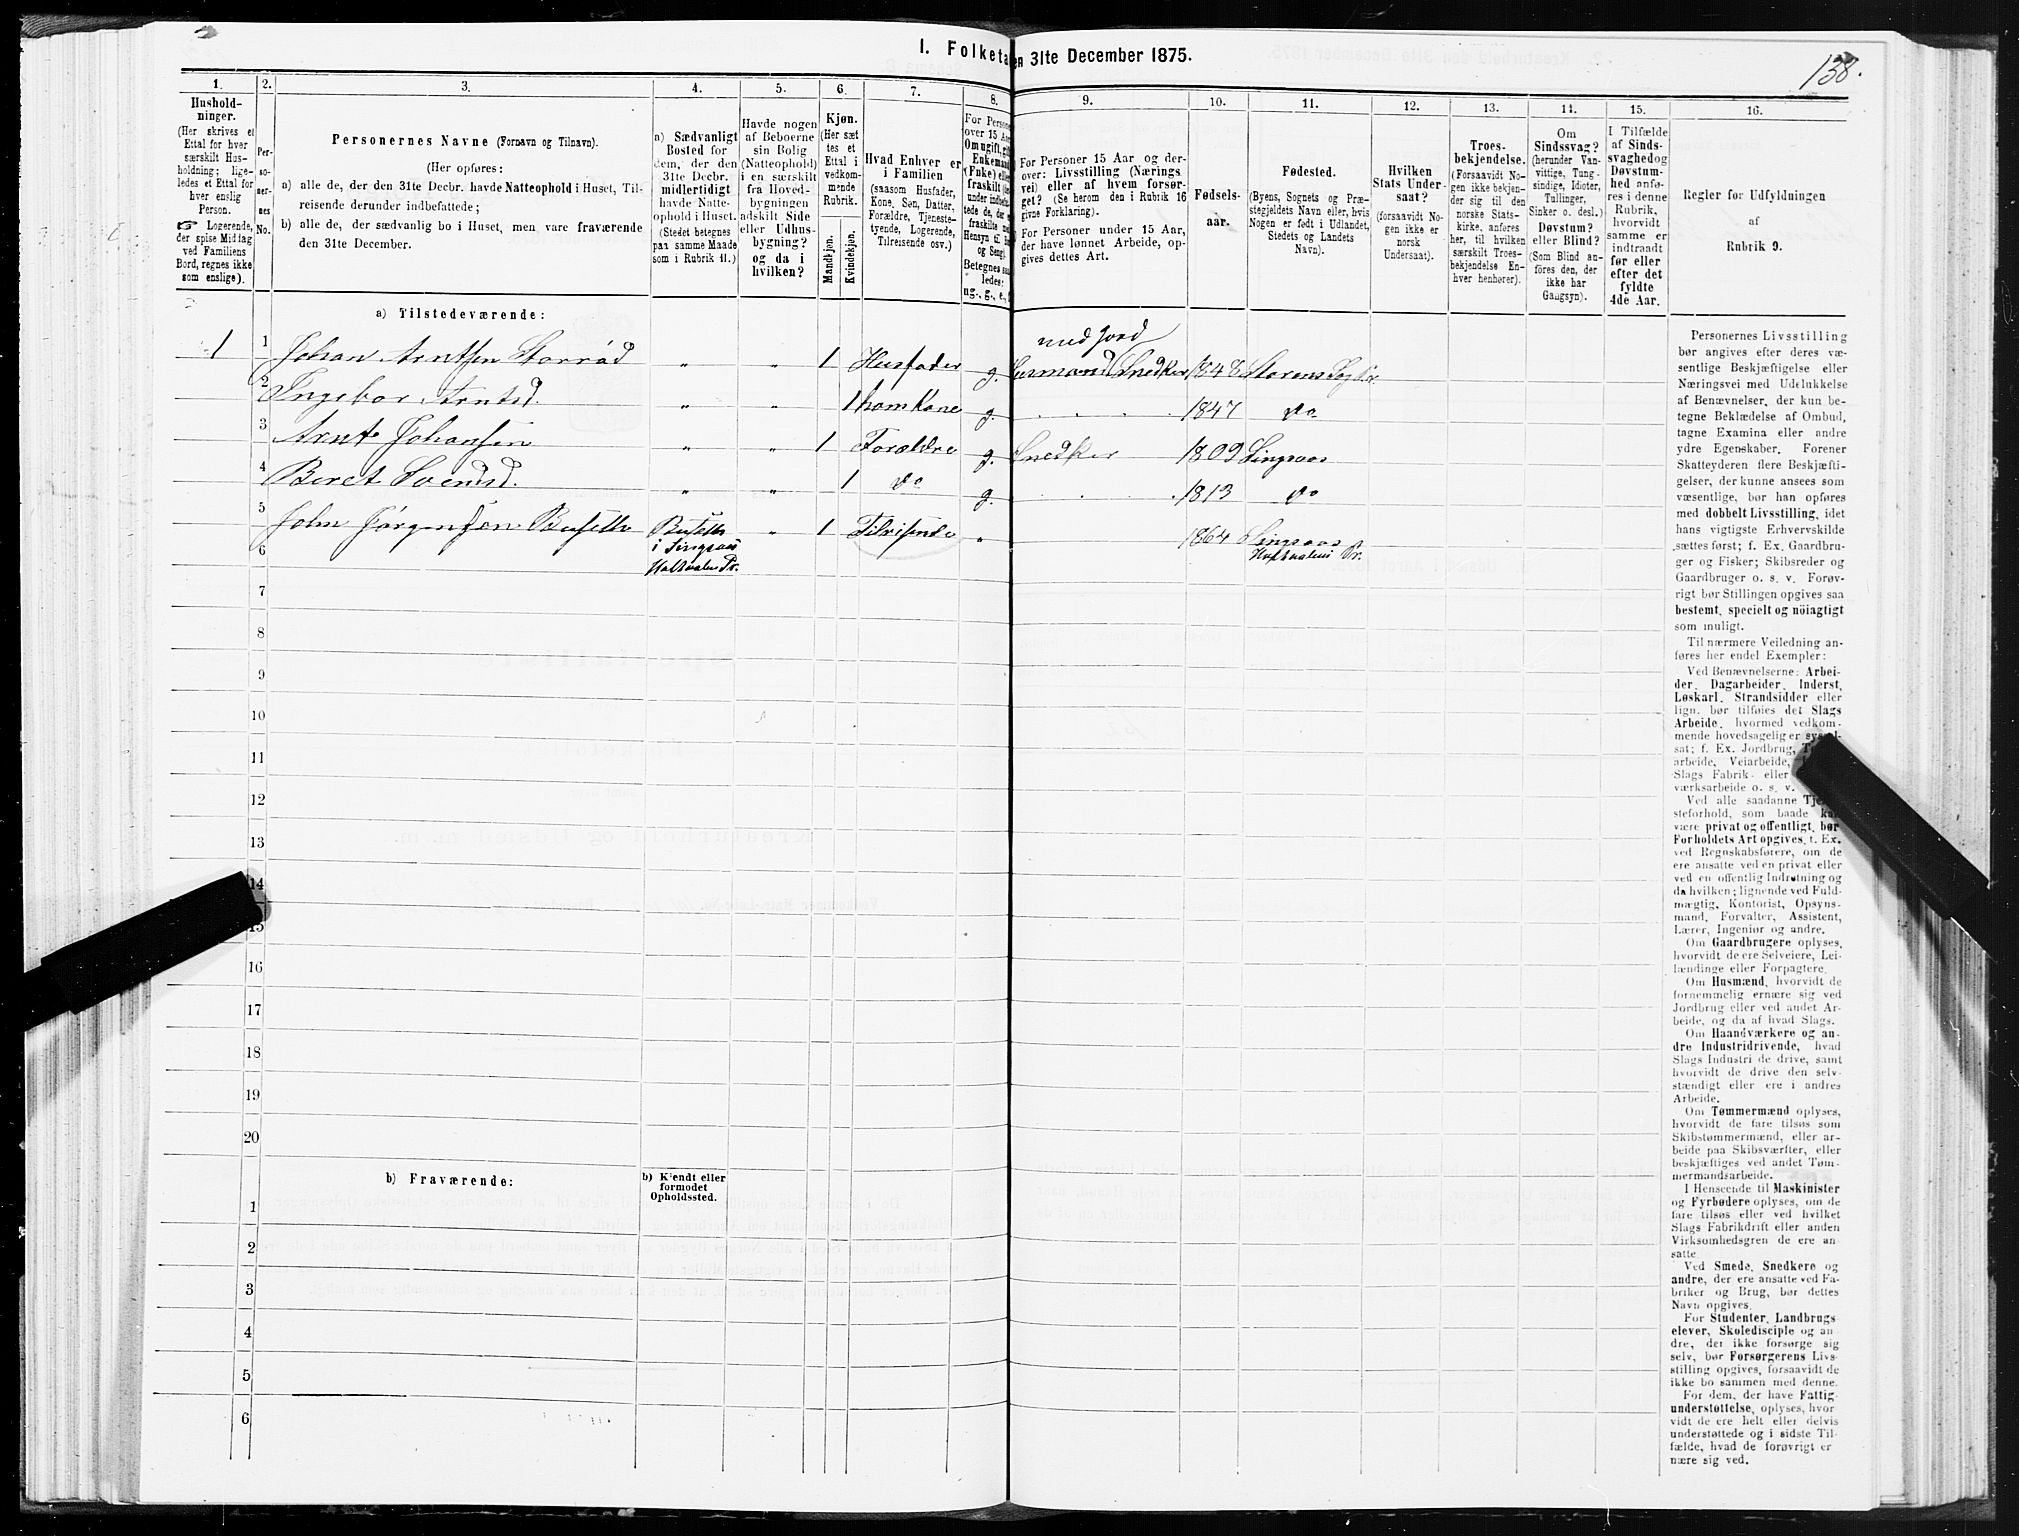 I. Folketa
en 31te December 1875.
138.
1.
2.
3.
4.
5.
6.
7.
8.
9.
10.
11.
12.
13.
14.
15.
16.
Hushold-
ninger.
(Her skrives et
Ettal for hver
særskilt Hus-
holdning; lige-
ledes et Ettal for
hver enslig
Person.
☞ Logerende,
der spise Middag
ved Familiens
Bord, regnes ikke
som enslige).
Per-
so-
ner-
nes
No.
Personernes Navne (Fornavn og Tilnavn).
(Her opføres:
a) alle de, der den 31te Decbr. havde Natteophold i Huset, Til-
reisende derunder indbefattede;
b) alle de, der sædvanlig bo i Huset, men vare fraværende
den 31te December.
a) Sædvanligt
Bosted for
dem, der den
31te Decbr.
midlertidigt
havde Natte-
ophold i Huset.
(Stedet betegnes
paa samme Maade
som i Rubrik 11.)
Havde nogen
af Beboerne
sin Bolig
(Natteophold)
i en særskilt
fra Hoved-
bygningen
adskilt Side
eller Udhus-
bygning?
og da i
hvilken?
Kjøn.
(Her sæt
tes et
Ettal i
vedkom-
mende
Rubrik.
Mandkjøn.
Kvindekjøn.
Hvad Enhver er
i Familien
(saasom Husfader,
Kone, Søn, Datter,
Forældre, Tjeneste-
tyende, Logerende,
Tilreisende osv.)
For Persone
over 15 Aa
Om ugift, gif
Enkemand
(Enke) elle
fraskilt
Hensyn til
og Seng).
Betegnes saa
ledes:
ug., g., e.,
For Personer 15 Aar og der-
over: Livsstilling (Nærings
vei) eller af hvem forsør-
get? (Se herom den i Rubrik 16
givne Forklaring).
For Personer under 15 Aar,
der have lønnet Arbeide, op-
gives dettes Art.
Fødsels-
aar.
Fødested.
(Byens, Sognets og Præ-
stegjeldets Navn eller, hvis
Nogen er født i Udlandet,
Stedets og Landets
Navn).
Hvilken
Stats Under-
saat?
(forsaavidt No-
gen ikke er
norsk
Undersaat).
Troes-
bekjendelse.
(Forsaavidt No-
gen ikke bekjen-
der sig til den
norske Stats-
kirke, anføres
her, til hvilken
særskilt Troes-
bekjendelse En-
hver henhører).
Om
Sindssvag?
(herunder Van-
vittige, Tung-
sindige, Idioter,
Tullinger,
Sinker o. desl.)
Døvstum?
eller Blind?
(Som Blind an-
føres den, der
ikke har
Gangsyn).
I Tilfælde
af Sinds-
svaghed og
Døvstum-
hed anfø-
res i denne
Rubrik,
hvorvidt
samme er
indtraadt
før eller
efter det
fyldte
4de Aar.
Regler for Udfyldningen
af
Rubrik 9.
a) Tilstedeværende:
med Jord
1 1 Johan Arntsen Storrød " " 1 Husfader g. Husmand Snedker 1848 Størens Sog Pr.
2 Ingebor Arntsd. " " 1 ham Kone g. 1847 do
3 Arnt Johansen " " 1 Forældre g. Snedker 1809 Singsaas
4 Beret Svendsd. " " 1 do g. 1813 do
5 John Jørgensen Busetth Busetth " 1 Tilreisende " 1864 Singsaas
i Singsaas
Holtaalen Pr.
Holtaalens Pr.
6
7
8
9
10
11
12
13
14
15
16
17
18
19
20
b) Fraværende:
b) Kjendt eller
formodet
Opholdssted.
1
2
3
4
5
6
Personernes Livsstilling
bør angives efter deres væ-
sentlige Beskjæftigelse eller
Næringsvei med Udelukkelse
af Benævnelser, der kun be-
tegne Beklædelse af Ombud,
tagne Examina eller andre
ydre Egenskaber. Forener
Skatteyderen flere Beskjæfti-
gelser, der kunne ansees som
væsentlige, bør han opføres
med dobbelt Livsstilling, idet
hans vigtigste Erhvervskilde
sættes først; f. Ex. Gaardbru-
ger og Fisker; Skibsreder og
Gaardbruger o. s. v. Forøv-
rigt bør Stillingen opgives saa
bestemt, specielt og nöiagtigt
som muligt.
Til nærmere Veiledning an-
føres her endel Exempler:
Ved Benævnelserne: Arbei-
der, Dagarbeider, Inderst,
Løskarl, Strandsidder eller
lign. bør tilføies det Slags
Arbeide, hvormed vedkom-
mende hovedsagelig er syssel-
sat; f. Ex. Jordbrug,
arbeide, Veiarbeide,
Slags Fabrik- eller
værksarbeide o. s. v.
Ved alle saadanne
steforhold, som baade
være privat og offentligt, bør
Forholdets Art opgives, f. Ex.
ved Regnskabsførere, om de
ere ansatte ved en privat eller
ved en offentlig Indretning og
da hvilken; lignende ved Fuld-
mægtig, Kontorist, Opsyns-
mand, Forvalter, Assistent,
Lærer, Ingeniør og andre.
Om Gaardbrugere oplyses,
hvorvidt de ere Selveiere, Lei-
lændinge eller Forpagtere.
Om Husmænd, hvorvidt de
fornemmelig ernære sig ved
Jordbrug eller ved andet Ar-
beide, og da af hvad Slags.
Om Haandværkere og an-
dre Industridrivende, hvad
Slags Industri de drive, samt
hvorvidt de drive den selv-
stændigt eller ere i andres
Arbeide.
Om Tømmermænd oplyses,
hvorvidt de fare tilsøs som
Skibstømmermænd, eller ar-
beide paa Skibsværfter, eller
beskjæftiges ved andet Tøm-
mermandsarbeide.
I Henseende til Maskinister
og Fyrbødere oplyses, om de
fare tilsøs eller ved hvilket
Slags Fabrikdrift eller anden
Virksomhedsgren de ere an-
satte.
Ved Smede, Snedkere og
andre, der ere ansatte ved Fa-
briker og Brug, bør dettes
Navn opgives.
For Studenter, Landbrugs-
elever, Skoledisciple og an-
dre, der ikke forsørge sig
selv, bør Forsørgerens Livs-
stilling opgives, forsaavidt de
ikke bo sammen med denne.
For dem, der have Fattig-
understøttelse, oplyses, hvor-
vidt de ere helt eller delvis
understøttede og i sidste Til-
fælde, hvad de forøvrigt er
nære sig ved.